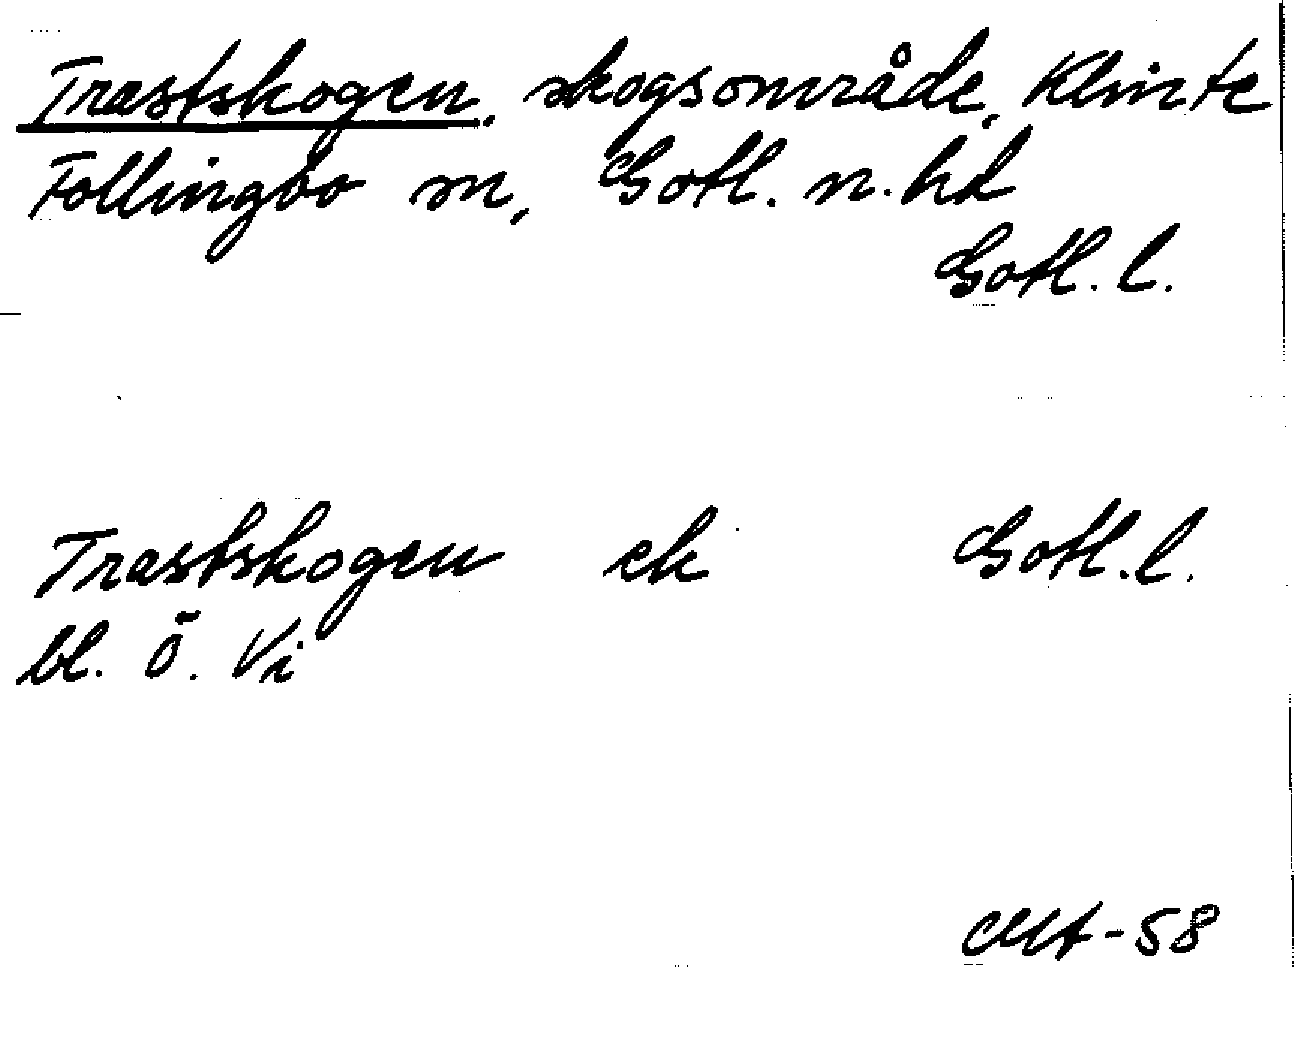 Trastskogen, skogsområde, Klinte
Follingbo sn, Gotl. n. hd
Gotl. l.
Trastskogen ek Gotl. l.
bl. Ö. Vi
-58